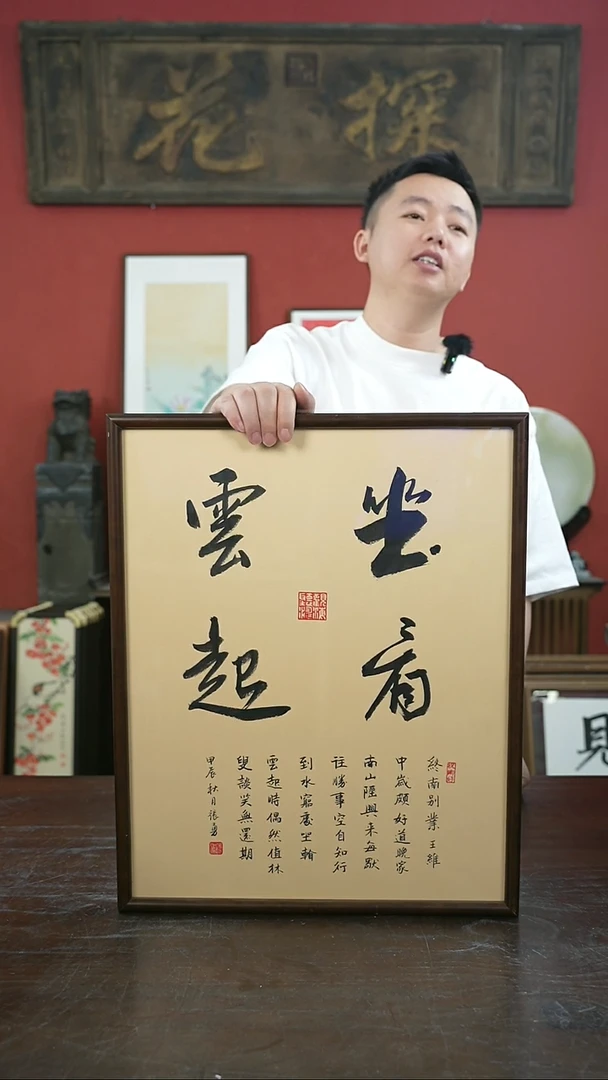 探花
坐看
雲起
終南别業 王維
中歲頗好道晚家
南山陲興来每獨
往勝事空自知行
到水窮處坐看
雲起時偶然值林
叟談笑無還期
甲辰秋月張
見